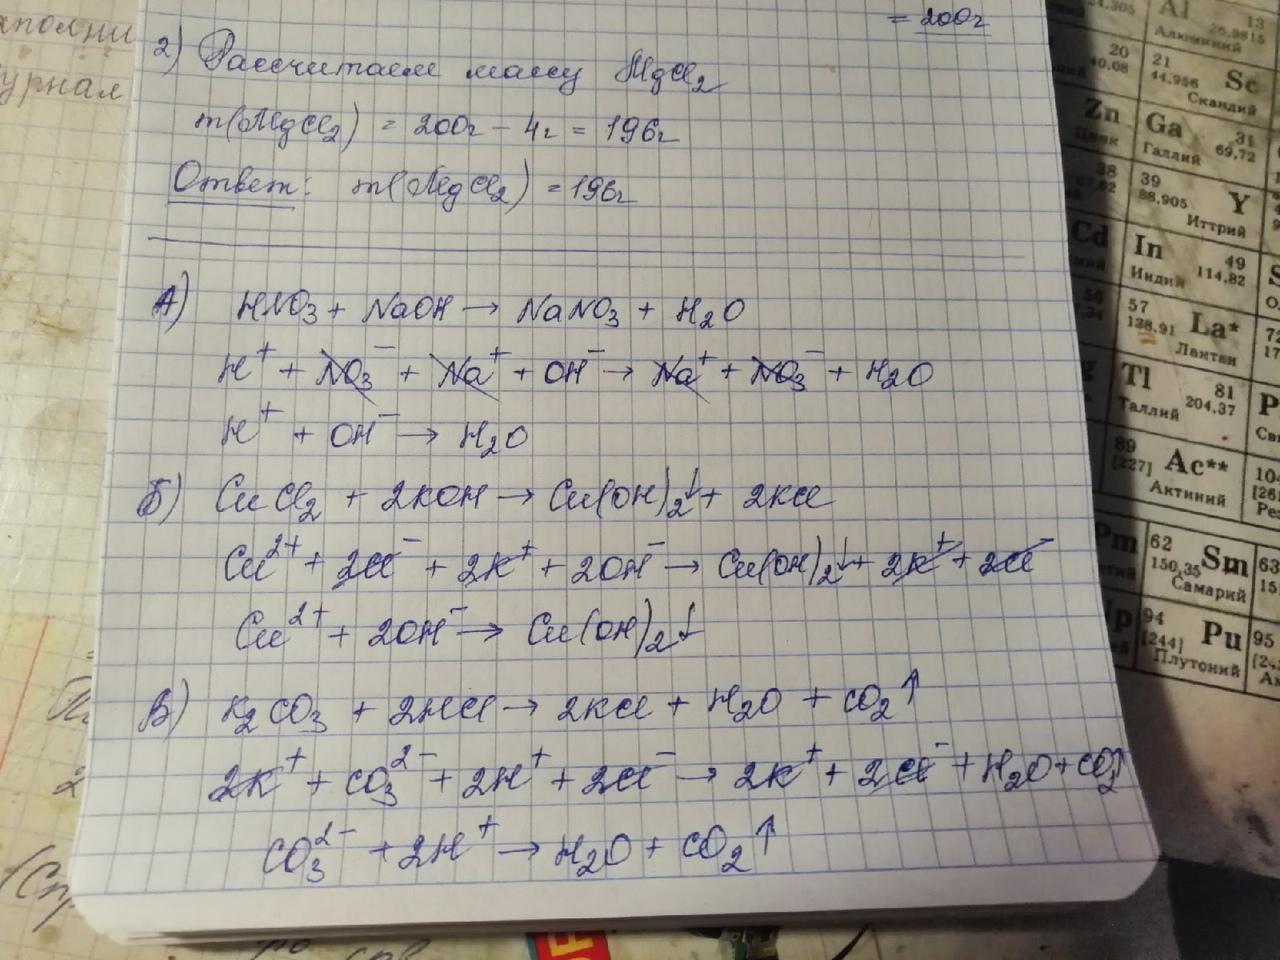 = 200г
2) Рассчитаем массу MgCl2
m(MgCl2) = 200г - 4г = 196г
Ответ: m(MgCl2) = 196г
А) HNO3 + NaOH → NaNO3 + H2O
H⁺ + NO3⁻ + Na⁺ + OH⁻ → Na⁺ + NO3⁻ + H2O
H⁺ + OH⁻ → H2O
Б) CuCl2 + 2KOH → Cu(OH)2↓ + 2KCl
Cu²⁺ + 2Cl⁻ + 2K⁺ + 2OH⁻ → Cu(OH)2↓ + 2K⁺ + 2Cl⁻
Cu²⁺ + 2OH⁻ → Cu(OH)2↓
В) K2CO3 + 2HCl → 2KCl + H2O + CO2↑
2K⁺ + CO3²⁻ + 2H⁺ + 2Cl⁻ → 2K⁺ + 2Cl⁻ + H2O + CO2↑
CO3²⁻ + 2H⁺ → H2O + CO2↑
Al 13
26,9815
Алюминий
20
40,08
21
44,956 Sc
Скандий
Zn
Цинк
Ga 31
69,72
Галлий
38
39
88,905 Y
Иттрий
Cd
In 49
114,82
Индий
57
138,91 La*
Лантан
Tl 81
204,37
Таллий
89
[227] Ac**
Актиний
Pm
62
150,35 Sm
Самарий
63
Np
94
[244] Pu
Плутоний
95